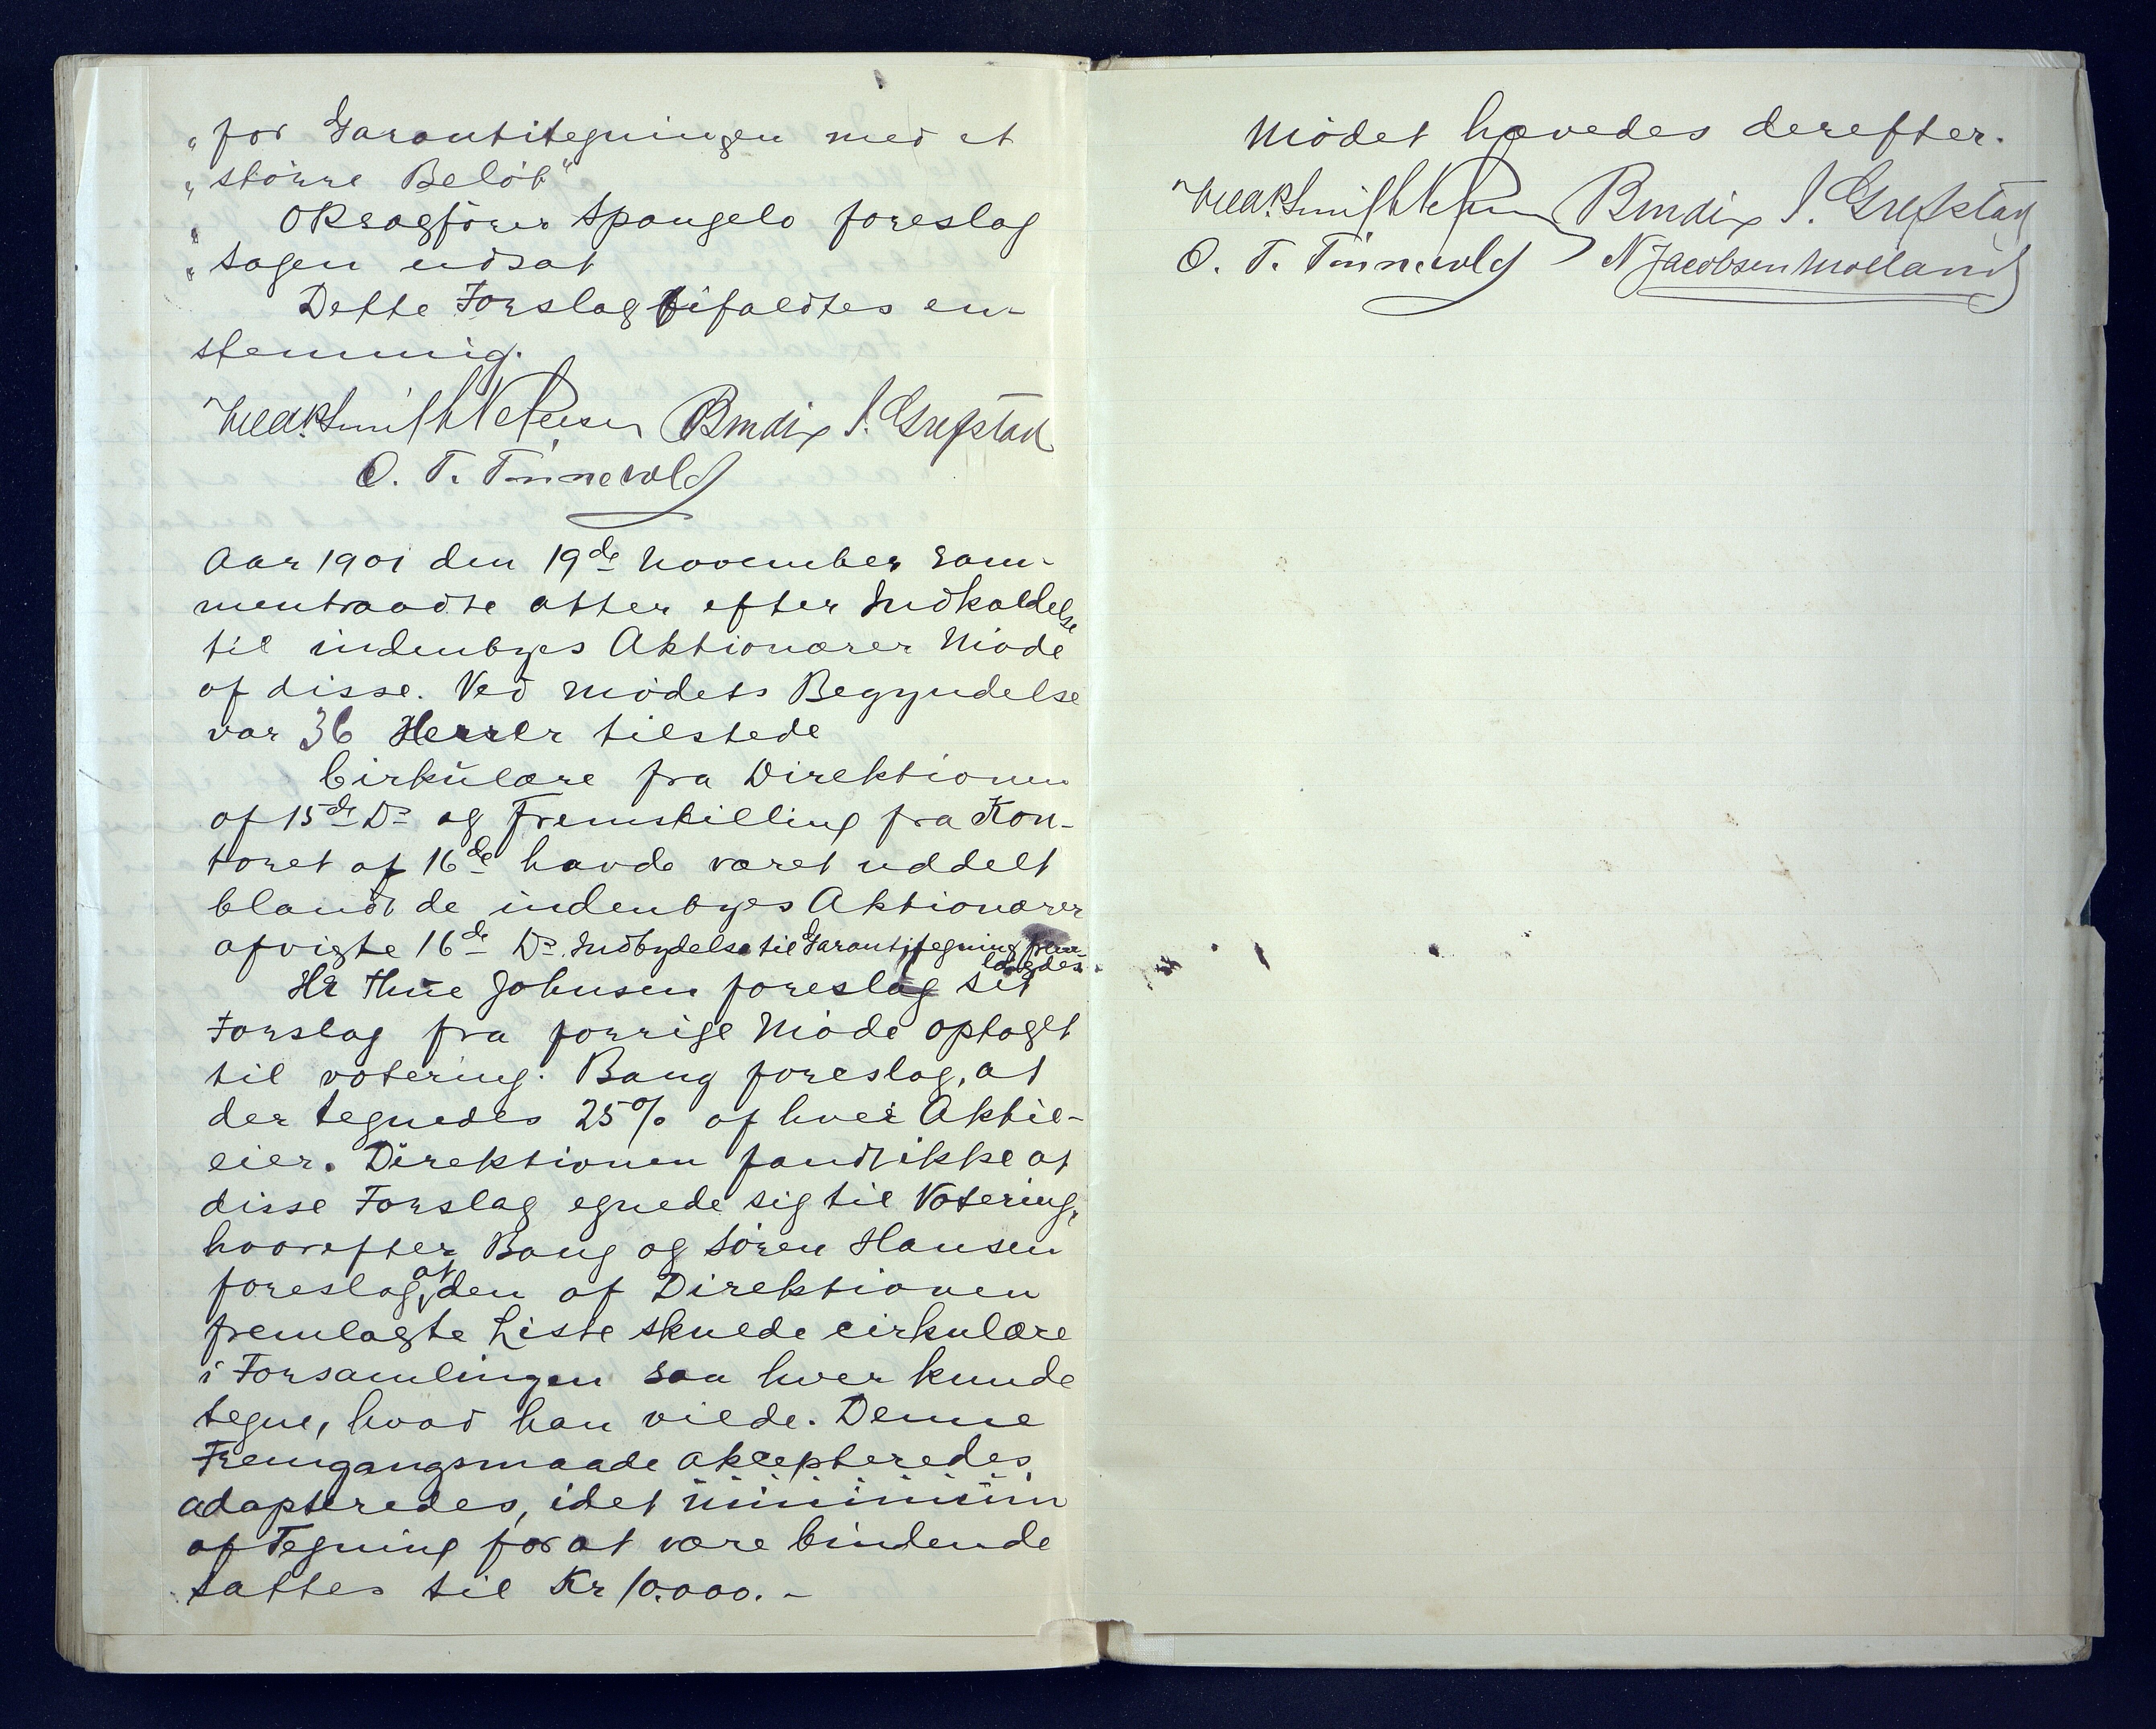 „for Garantitegningen med et
„större Belöb"
„ ORsagförer Spangelo foreslog
„Sagen udsat
Dette Forslag bifaldtes en-
stemmig.
Bendix J. Grefstad
O. T. Tönnevold
Aar 1901 den 19de November sam-
mentraadte atter efter Indkaldelse
til indenbyes Aktionærer Möde
af disse. Ved Mödets Begyndelse
var 36 Herrer tilstede
Cirkulære fra Direktionen
af 15de Ds og Fremstilling fra Kon-
toret af 16de havde været uddelt
blandt de indenbyes Aktionærer
afvigte 16de Ds. Indbydelse til Garantitegning frem-
lagdes.
Hr Thue Johnsen foreslog sit
Forslag fra forrige Möde optaget
til votering. Bang foreslog, at
der tegnedes 25% af hver Aktie-
eier. Direktionen fandt ikke at
disse Forslag egnede sig til Votering,
hvorefter Bang og Sören Hansen
foreslog, at den af Direktionen
fremlagte Liste skulde cirkulere
i Forsamlingen saa hver kunde
tegne, hvad han vilde. Denne
Fremgangsmaade akcepteredes
adopteredes, idet minimum
af Tegning for at være bindende
sattes til Kr 10.000.-
Mödet hævedes derefter.
Bendix J. Grefstad
O. T. Tönnevold N Jacobsen Molland